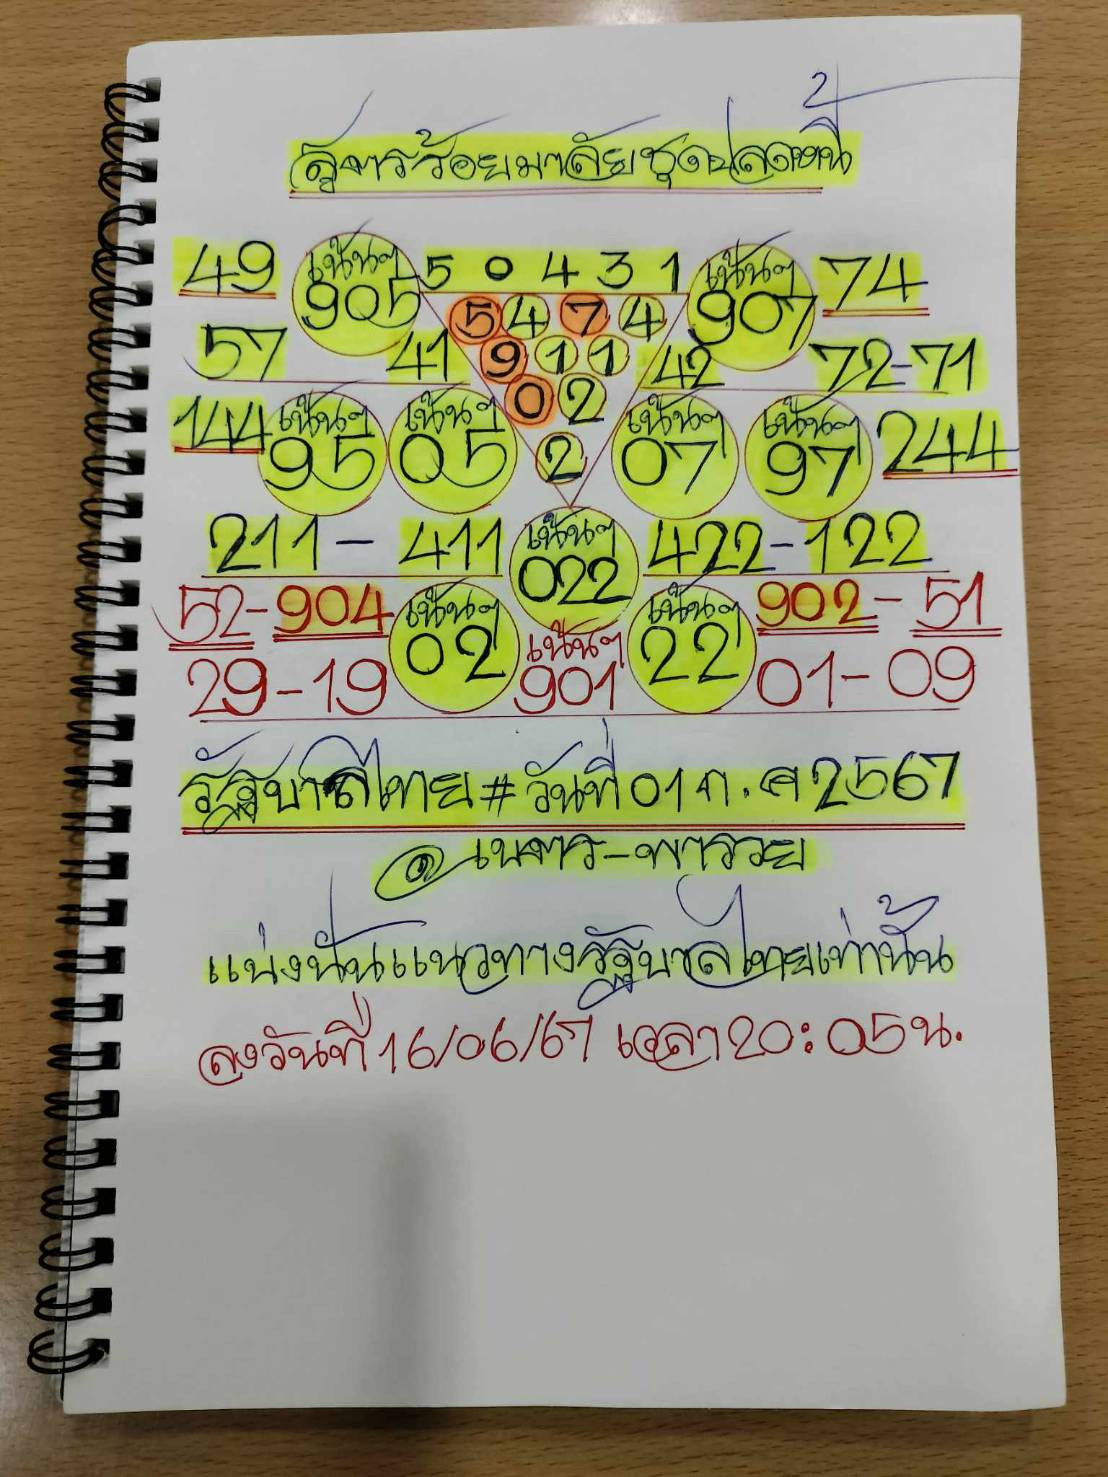 สูตรร้อยมาลัยชุดปลดหนี้
49 เน้นๆ 905 5 0 4 3 1 เน้นๆ 907 74
5 4 7 4
57 41 9 1 1 42 72-71
0 2
144 เน้นๆ 95 เน้นๆ 05 2 เน้นๆ 07 เน้นๆ 97 244
211 - 411 เน้นๆ 022 422-122
52-904 เน้นๆ 02 เน้นๆ 22 902-51
29-19 เน้นๆ 901 01-09
รัฐบาลไทย # วันที่ 01 ก.ค 2567
@ เนตร-พารวย
แบ่งปันแนวทางรัฐบาลไทยเท่านั้น
ลงวันที่ 16/06/67 เวลา 20:05 น.